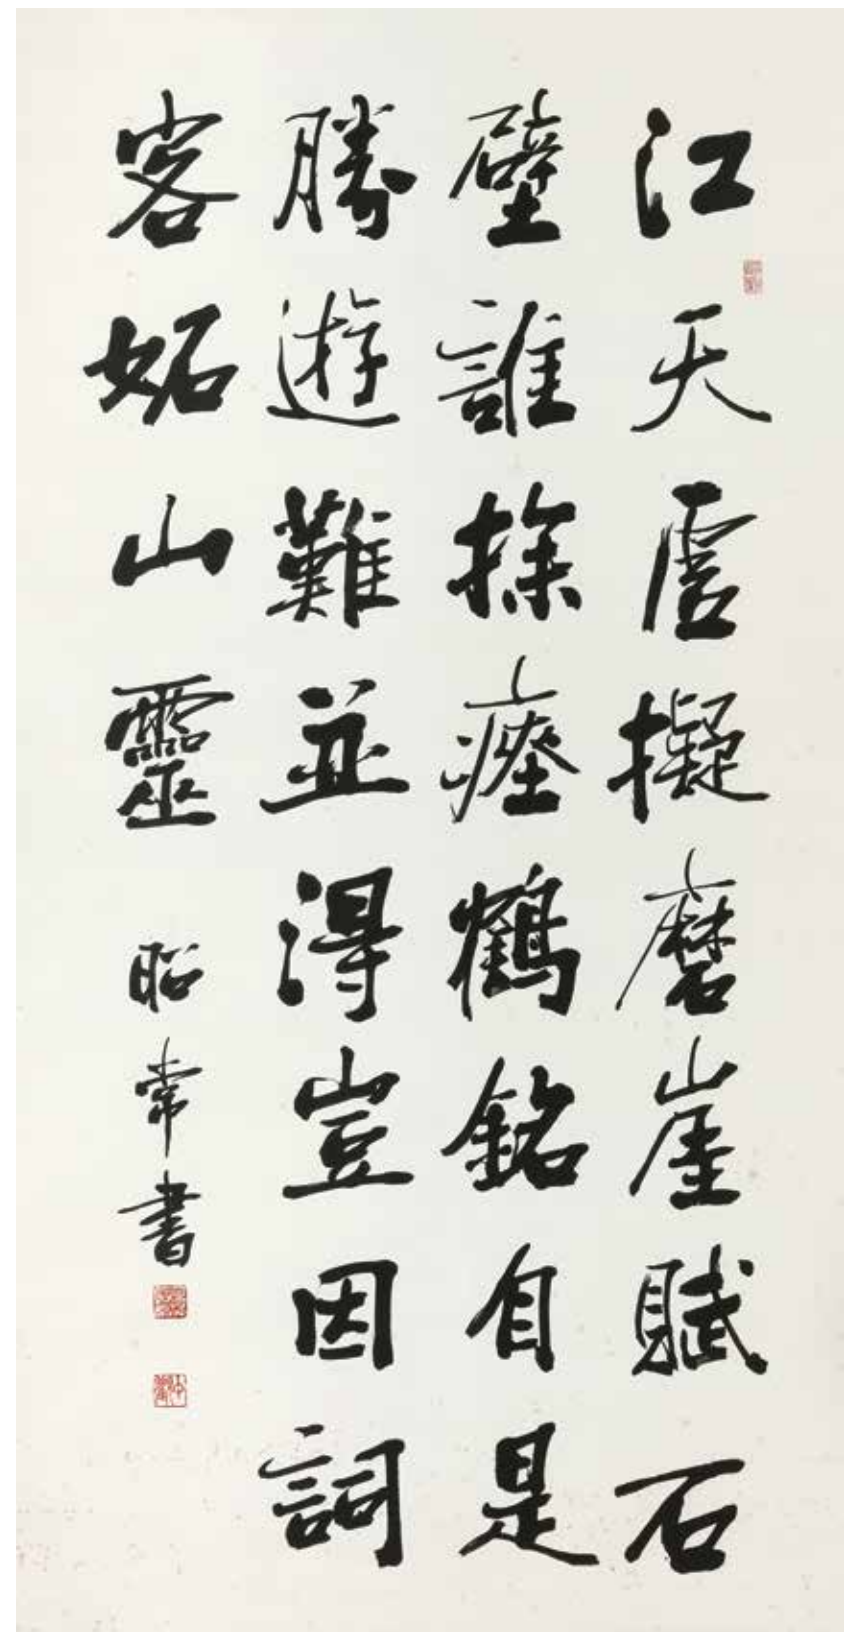 江天虛擬磨崖賦石
壁誰探瘞鶴銘自是
勝遊難並得豈因詞
客妬山靈 昭常書